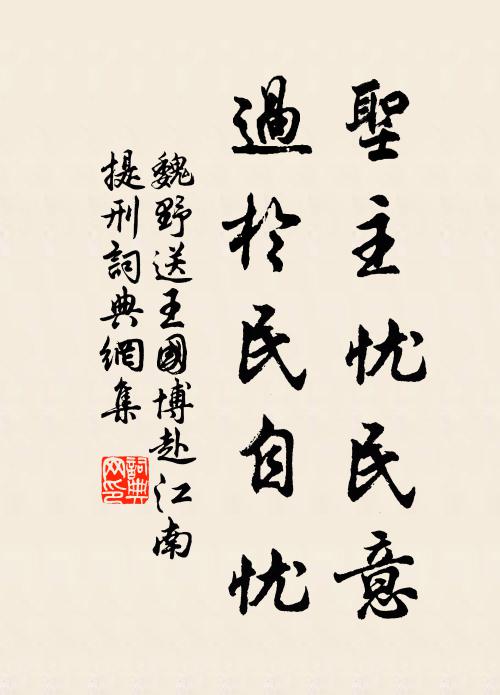 聖主忧民意
過於民自忧
魏野送王國博赴江南
提刑詞典網集
詞典
网印